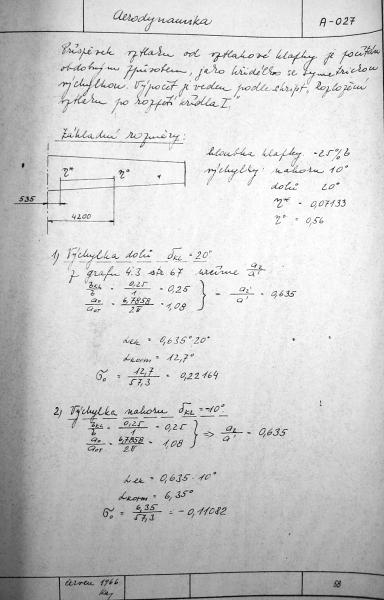 Aerodynamika
A-027
Příspěvek vztlaku od vztlakové klapky je počítán
obdobným způsobem, jako křidélko se symetrickou
výchylkou. Výpočet je veden podle skript „Rozložení
vztlaku po rozpětí křídla I."
Základní rozměry:
hloubka klapky - 25% b
výchylky: nahoru 10°
dolů 20°
η* = 0,07133
η° = 0,56
η* η°
535
4200
1) Výchylka dolů δKL = 20°
z grafu 4.3 str 67 určíme a2/a1
bKL/b = 0,25/1 = 0,25
a0/a0T = 6,7858/2π = 1,08 } = a2/a1 = 0,635
αek = 0,635 · 20°
αkorm = 12,7°
σ0 = 12,7/57,3 = 0,22164
2) Výchylka nahoru δKL = -10°
bKL/b = 0,25/1 = 0,25
a0/a0T = 6,7858/2π = 1,08 } ⇒ a2/a1 = 0,635
αek = 0,635 · 10°
αkorm = 6,35°
σ0 = 6,35/57,3 = -0,11082
červen 1966
58